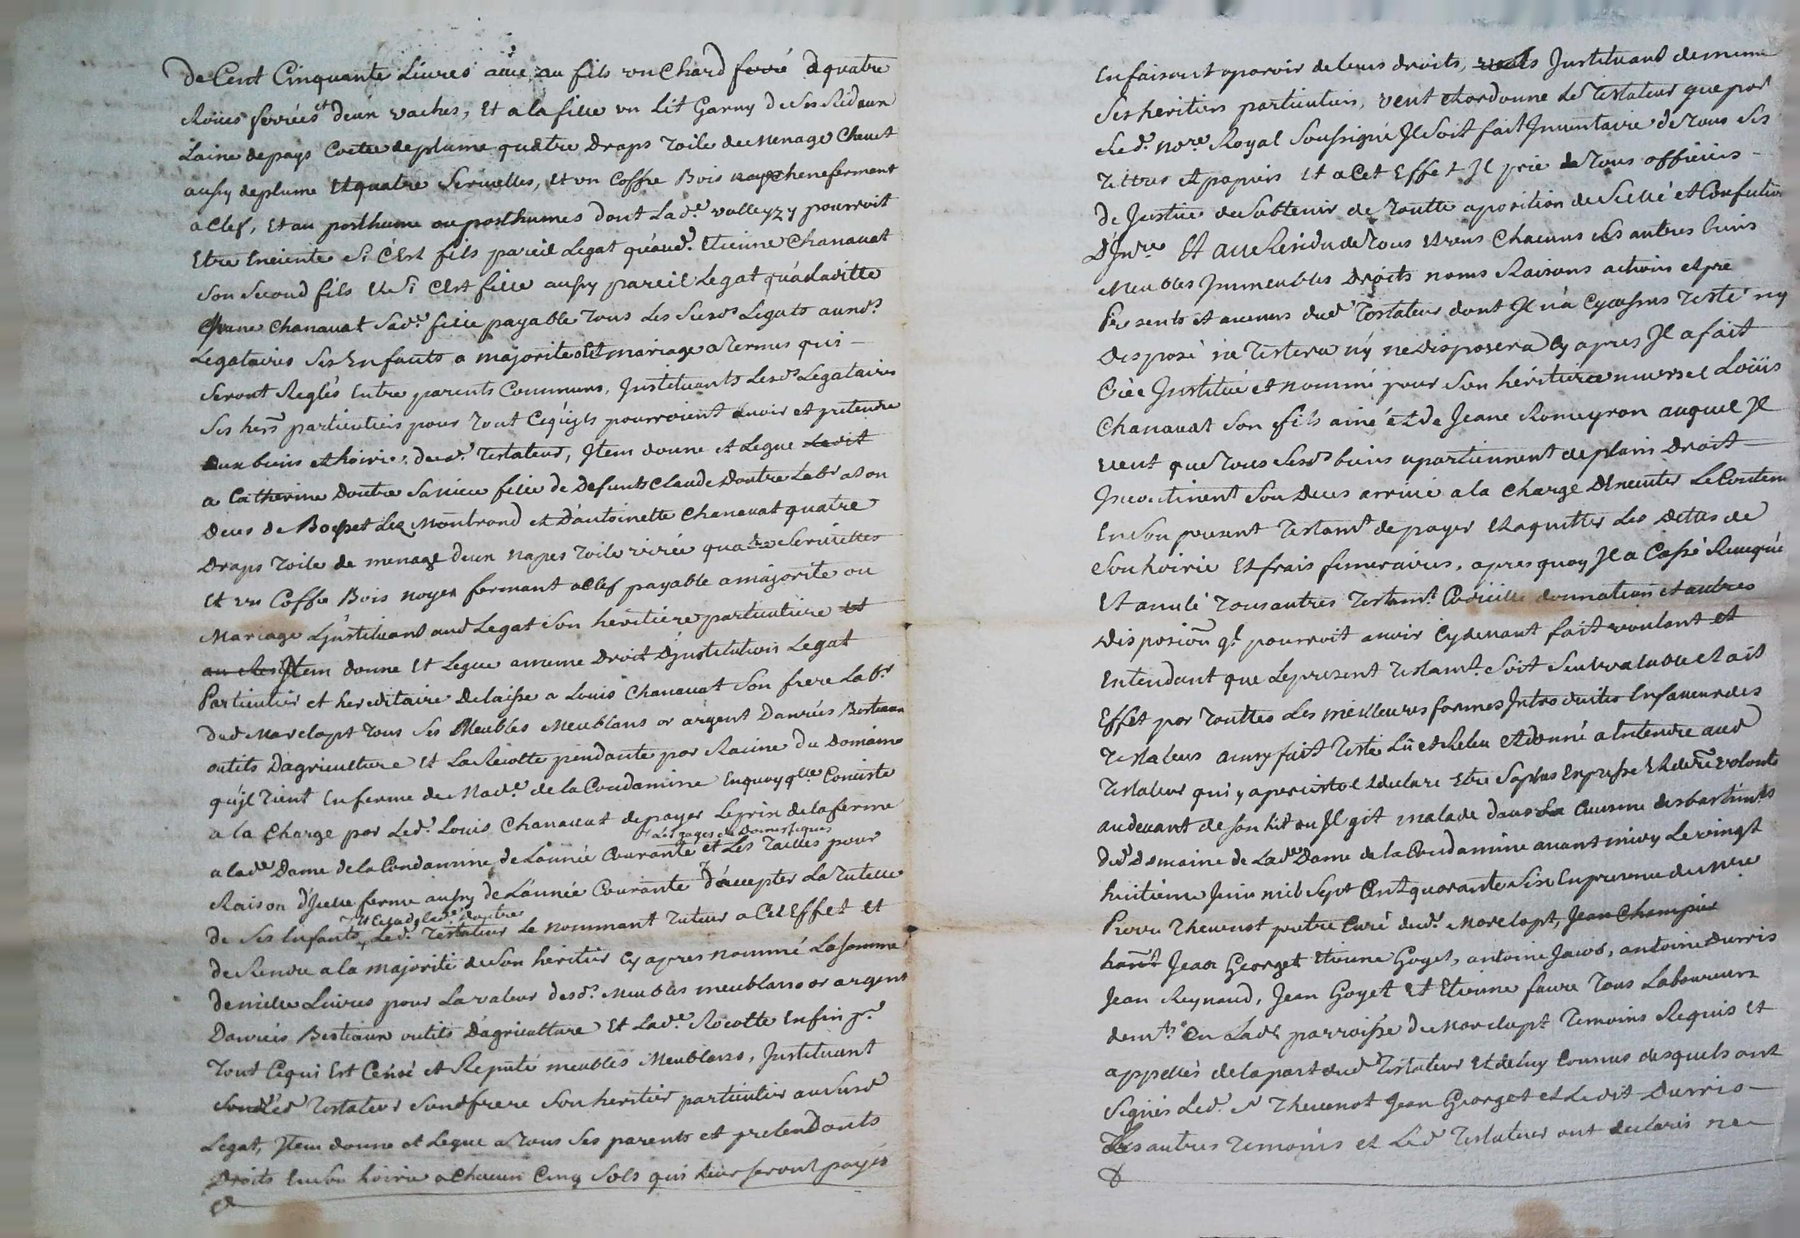 De Cent Cinquante Livres avec au fils un Chard ferré a quatre
Roües ferrées et deux vaches, Et a la fille un Lit Garny de Ses Rideaux
Laine de pays Coetre de plume quatre Draps Toile de Menage Chevet
aussy de plume Et quatre Serviettes, et un Coffre Bois fermant
a Clef, Et au posthume ou posthumes dont Lad.e valleyzy pourroit
Etre Enceinte Si C'Est fils pareil Legat qu'aud.t Etienne Chanavat
Son Second fils Et Si C'Est fille aussy pareil Legat qu'a Laditte
Chanavat Sad.e fille payable Tous Les Susd.s Legats ausd.s
Legataires Ses Enfants a majorité ou mariage a Termes qui
Seront Reglés Entre parents Communs, Instituants Lesd.s Legataires
Ses hers particuliers pour Tout Ce qu'ils pourroient avoir et pretendre
aux biens et hoirie dud.t Testateur, Item donne et Legue Ledit
a Catherine Doutre Sa niece fille de Defunts Claude Doutre Lab.r a Son
Deces de Boisset Les Montrond et D'antoinette Chanavat quatre
Draps Toile de menage deux napes Toile quatre Serviettes
Et un Coffre Bois noyer fermant a Clef payable a majorité ou
Mariage L'Instituant aud Legat Son héritière particuliere et
Item donne Et Legue a meme Droit D'Institution Legat
Particulier et hereditaire Delaisse a Louis Chanavat Son frere Lab.r
Dud Marclopt Tous Ses Meubles Meublans or argent Danrées Bestiaux
outils D'agriculture Et La Récolte pendante par Racine du Domaine
qu'Il Tient En ferme de Mad.e de la Condamine En quoy q.lle Consiste
a la Charge par Led.t Louis Chanavat de payer Le prix de la ferme
Les gages des Domestiques
a lad.e Dame de la Condamine de L'année Courante et Les Tailles pour
Raison D'Icelle ferme aussy de L'année Courante D'accepter La Tutelle
et de lad. Doutre
de Ses Enfants Led.t Testateur Le nommant Tuteur a Cet Effet et
de Rendre a la majorité de Son héritier Cy apres nommé La Somme
De mille Livres pour La valeur desd.s Meubles meublans or argent
Danrées Bestiaux outils D'agriculture Et Lad.e Récolte Enfin p.r
Tout Ce qui Est Censé et Reputé meubles Meublans, Instituant
Led Testateur Sond frere Son heritier particulier au Susd
Legat, Item donne et Legue a Tous Ses parents et pretendants
Droits En Son hoirie a Chacun Cinq Sols qui Leur Seront payés
En faisant aparoir de Leurs droits, Les Instituant de meme
Ses heritiers particuliers, veut et ordonne Led Testateur que par
Led.t No.re Royal Soussigné Il Soit fait Inventaire de Tous Ses
Tittres et papiers Et a Cet Effet Il prie Tous officiers
De Justice de S'abtenir de Toutte aposition de Scellé et Confection
D'Inv.re Et au Residu de Tous Et uns Chacuns Ses autres biens
Meubles Immeubles Droits noms Raisons actions et pre
Presents et avenirs dud.t Testateur dont Il n'a Cy dessus Testé ny
Disposé ne Testera n'y ne disposera Cy apres Il a fait
Créé Institué et nommé pour Son héritier universel Loüis
Chanavat Son fils ainé et de Jeane Romeyron auquel Il
veut que Tous Sesd.s biens apartiennent de plain Droit
Incontinent Son Deces arrivé a la Charge D'Executer Le Contenu
En Son present Testam.t de payer Et aquitter Les Dettes de
Son hoirie Et frais funeraires, apres quoy Il a Cassé Revoqué
Et anulé Tous autres Testam.t Codicille donnations et autres
Disposion q.l pourroit avoir Cy devant fait voulant et
Entendant que Le present Testam.t Soit Seul valable Et ait
Effet par Touttes Les meilleures formes Introduites En faveur des
Testateurs ainsy fait Testé Lü et Relu et donné a Entendre aud
Testateur qui y a persisté Et declaré Etre Sa plus Expresse Et derre volonté
au devant de Son Lit ou Il git malade dans La Cuisine des bastim.ts
dud Domaine de Lad.e Dame de la Condamine avant midy Le vingt
huitième Juin mil Sept Cent quarante Six En presence de M.re
Thevenot pretre Curé dud.t Marclopt, Jean Champier
Jean Georget Etienne Goyet, antoine Jacob, antoine Durris
Jean Reynaud, Jean Goyet Et Etienne faure Tous Laboureurs
dem.ts En Lad.e parroisse de Marclopt Temoins Requis Et
appellés de la part dud.t Testateur Et de luy Connus desquels ont
Signés Led.t S.r Thevenot Jean Georget et Ledit Durris
Les autres Temoins et Led Testateur ont declarés ne